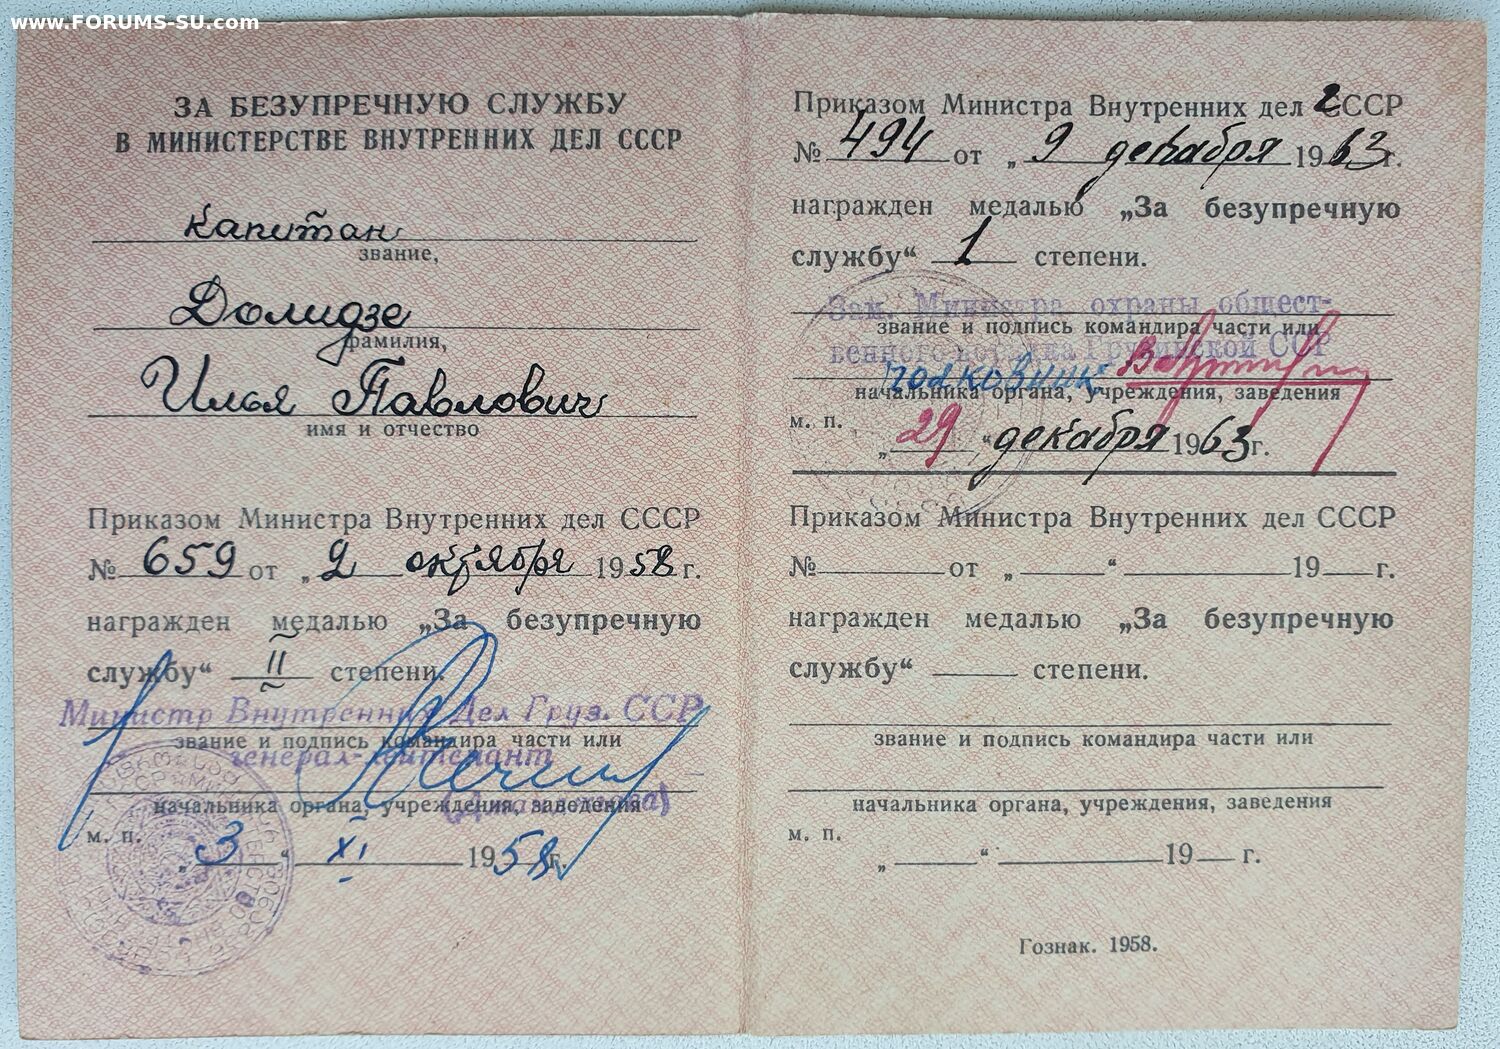 www.FORUMS-SU.com
ЗА БЕЗУПРЕЧНУЮ СЛУЖБУ
В МИНИСТЕРСТВЕ ВНУТРЕННИХ ДЕЛ СССР
Капитан
звание,
Долидзе
фамилия,
Илья Павлович
имя и отчество
Приказом Министра Внутренних дел СССР
№ 659 от „ 2 октября 1958 г.
награжден медалью „За безупречную
службу“ II степени.
Министр Внутренних Дел Груз. ССР
звание и подпись командира части или
генерал-лейтенант
начальника органа, учреждения, заведения
м. п.
„ 3 “ XI 1958 г.
Приказом Министра Внутренних дел СССР
№ 494 от „ 9 декабря 1963 г.
награжден медалью „За безупречную
службу“ 1 степени.
Зам. Министра охраны общест-
звание и подпись командира части или
венного порядка Грузинской ССР
полковник
начальника органа, учреждения, заведения
м. п.
„ 29 “ декабря 1963 г.
Приказом Министра Внутренних дел СССР
№ от „ “ 19 г.
награжден медалью „За безупречную
службу“ степени.
звание и подпись командира части или
начальника органа, учреждения, заведения
м. п.
„ “ 19 г.
Гознак. 1958.